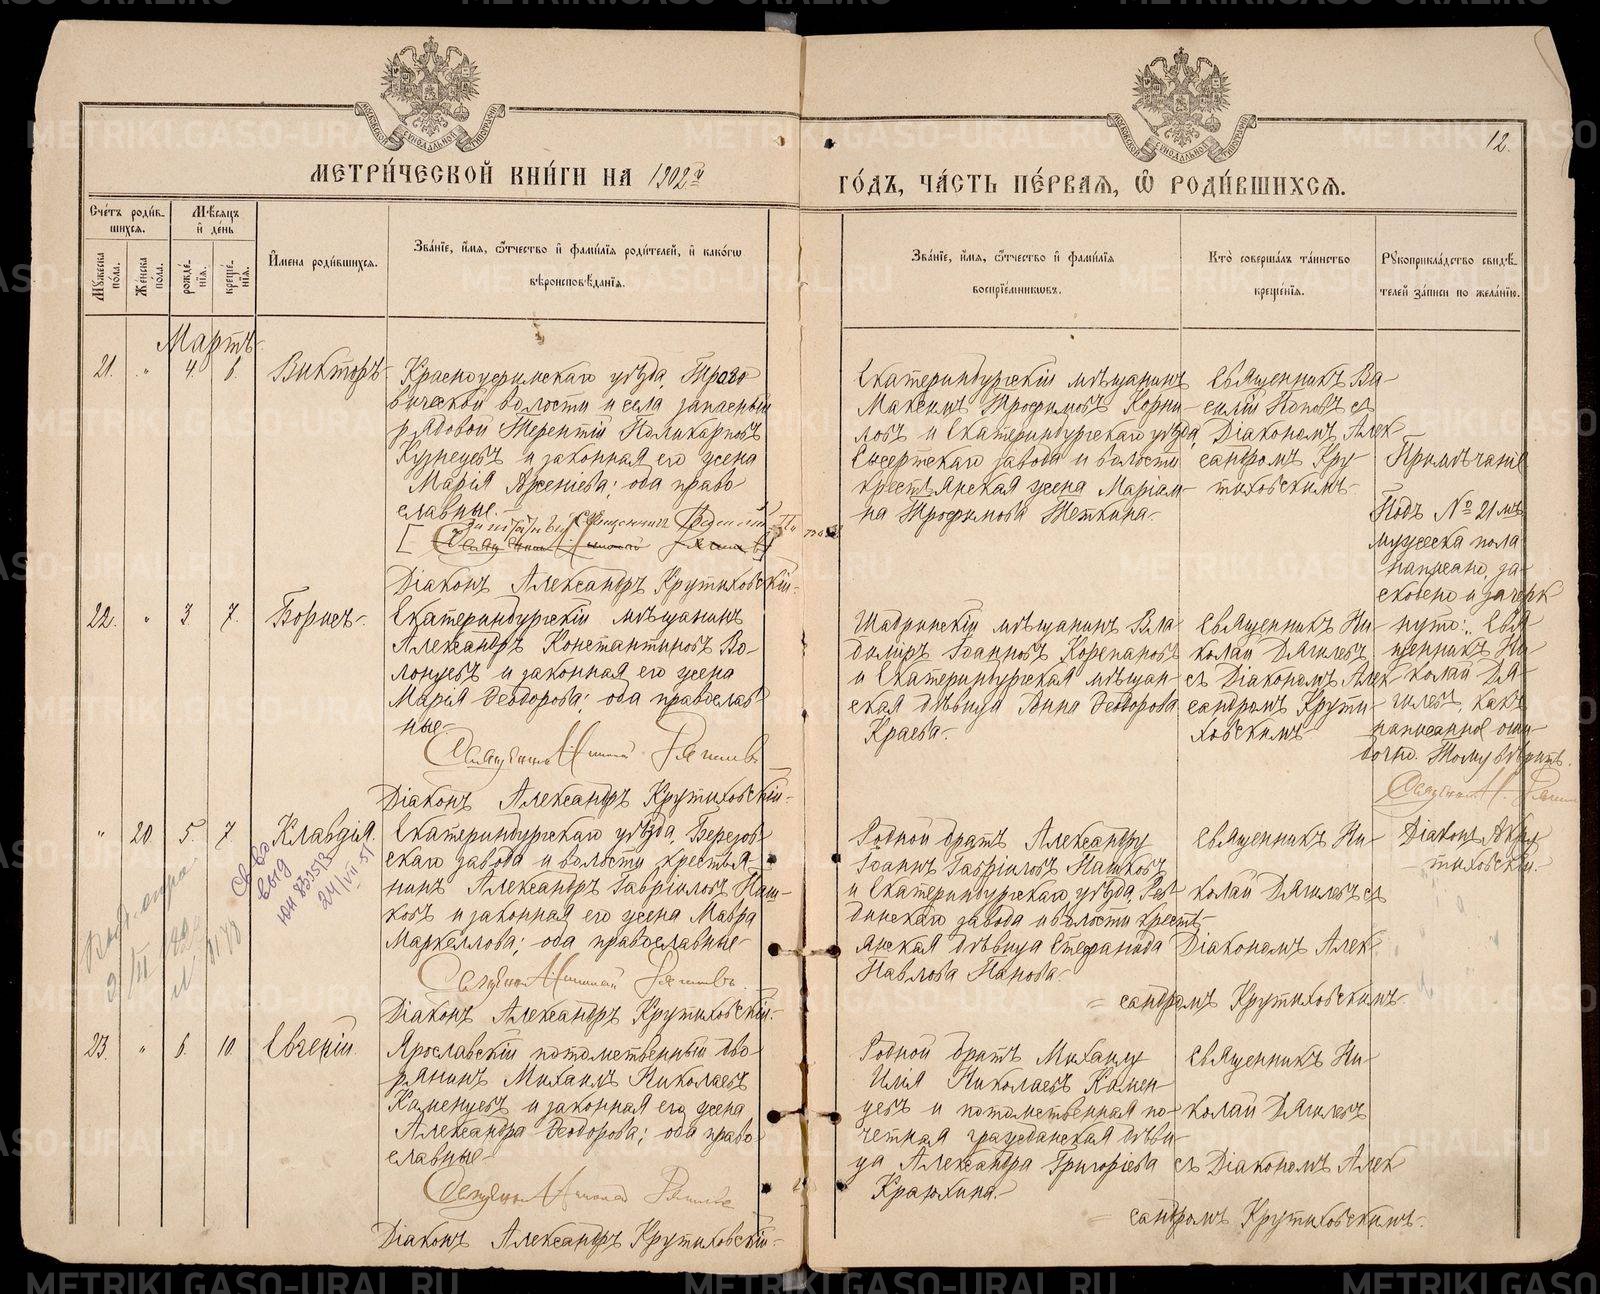 МЕТРИ́ЧЕСКОЙ КНИ́ГИ НА 1902й
ГО́ДЪ, ЧА́СТЬ ПЕ́РВАѦ, Ѽ РОДИ́ВШИХСѦ.
12.
Сче́тъ роди́в-
шихся.
Мѣ́сяцъ
и́ де́нь
Мꙋжеска по́ла.
Же́нска по́ла.
рожде́-
нїѧ.
креще́-
нїѧ.
И҆мена роди́вшихся.
Зва́нїе, и҆́мя, ѻ҆́тчество и҆ фами́лїя роди́телей, и҆ како́гѡ
вѣроисповѣ́данїя.
Зва́нїе, и҆́мя, ѻ҆́тчество и҆ фами́лїя
воспрїе́мникѡвъ.
Кто̀ соверша́лъ та́инство
креще́нїя.
Рꙋкоприкла́дство свидѣ́-
телей за́писи по жела́нїю.
Мартъ
21. " 4. 6. Викторъ
Красноуфимскаго уѣзда,
волости и села запасный
рядовой Терентій Поликарповъ
Кузнецовъ и законная его жена
Марія Арсеніева; оба право
славные.
Діаконъ Александръ Крутиховскій.
Екатеринбургскій мѣщанинъ
Максимъ Трофимовъ Корни
ловъ и Екатеринбургскаго уѣзда,
Сысертскаго завода и волости
крестьянская жена Маріам-
на Трофимова Теткина.
Священникъ Ва-
силій Поповъ съ
Діакономъ Алек
сандромъ Кру
тиховскимъ.
Примѣчаніе
Подъ № 21 мъ
мужеска пола
написано, за-
скоблено и зачерк
нуто: Свя
щенникъ Ни
колай Дя-
гилевъ, какъ
написанное оши
бочно. Тому вѣрить.
22. " 3 7. Борисъ.
Екатеринбургскій мѣщанинъ
Александръ Константиновъ Во-
лонцевъ и законная его жена
Марія Ѳеодорова; оба православ
ные.
Священникъ Николай Дягилевъ
Діаконъ Александръ Крутиховскій.
Шадринскій мѣщанинъ Вла
димиръ Іоанновъ Корепановъ
и Екатеринбургская мѣщан-
ская дѣвица Анна Ѳеодорова
Краева.
Священникъ Ни-
колай Дягилевъ
съ Діакономъ Алек
сандромъ Крути
ховскимъ.
" 20 5. 7. Клавдія.
Екатеринбургскаго уѣзда, Березов-
скаго завода и волости крестья-
нинъ Александръ Гавріиловъ Паш-
ковъ и законная его жена Мавра
Маркеллова; оба православные.
Священникъ Николай Дягилевъ.
Діаконъ Александръ Крутиховскій.
Родной братъ Александру
Іоаннъ Гавріиловъ Пашковъ
и Екатеринбургскаго уѣзда,
завода и волости кресть-
янская дѣвица Стефанида
Павлова Панова.
Священникъ Ни-
колай Дягилевъ съ
Діакономъ Алек-
= сандромъ Крутиховскимъ.
23. " 6. 10. Евгеній.
Ярославскій потомственный дво-
рянинъ Михаилъ Николаевъ
Каменцевъ и законная его жена
Александра Ѳеодорова; оба право
славные.
Діаконъ Александръ Крутиховскій.
Родной братъ Михаилу
Илія Николаевъ Камен-
цевъ и потомственная по-
четная гражданская дѣви-
ца Александра Григоріева
Краюхина.
Священникъ Ни-
колай Дягилевъ
съ Діакономъ Алек
= сандромъ Крутиховскимъ.
METRIKI.GASO-URAL.RU